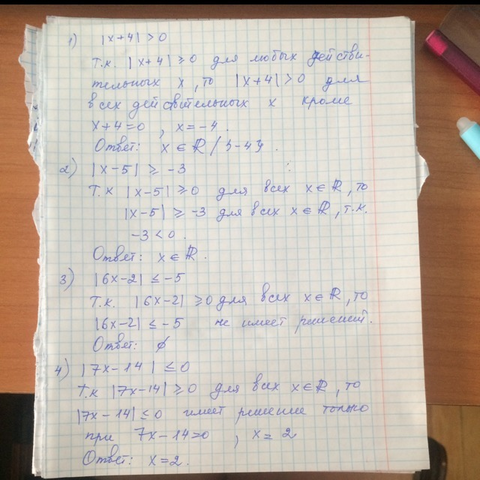 1) |x+4|>0
т.к. |x+4|≥0 для любых действи-
тельных x, то |x+4|>0 для
всех действительных x кроме
x+4=0, x=-4.
Ответ: x∈ℝ/{-4}
2) |x-5|≥-3
Т.к |x-5|≥0 для всех x∈ℝ, то
|x-5|≥-3 для всех x∈ℝ, т.к.
-3<0.
Ответ: x∈ℝ.
3) |6x-2|≤-5
Т.к. |6x-2|≥0 для всех x∈ℝ, то
|6x-2|≤-5 не имеет решений.
Ответ: ∅
4) |7x-14|≤0
Т.к |7x-14|≥0 для всех x∈ℝ, то
|7x-14|≤0 имеет решение только
при 7x-14=0, x=2
Ответ: x=2.